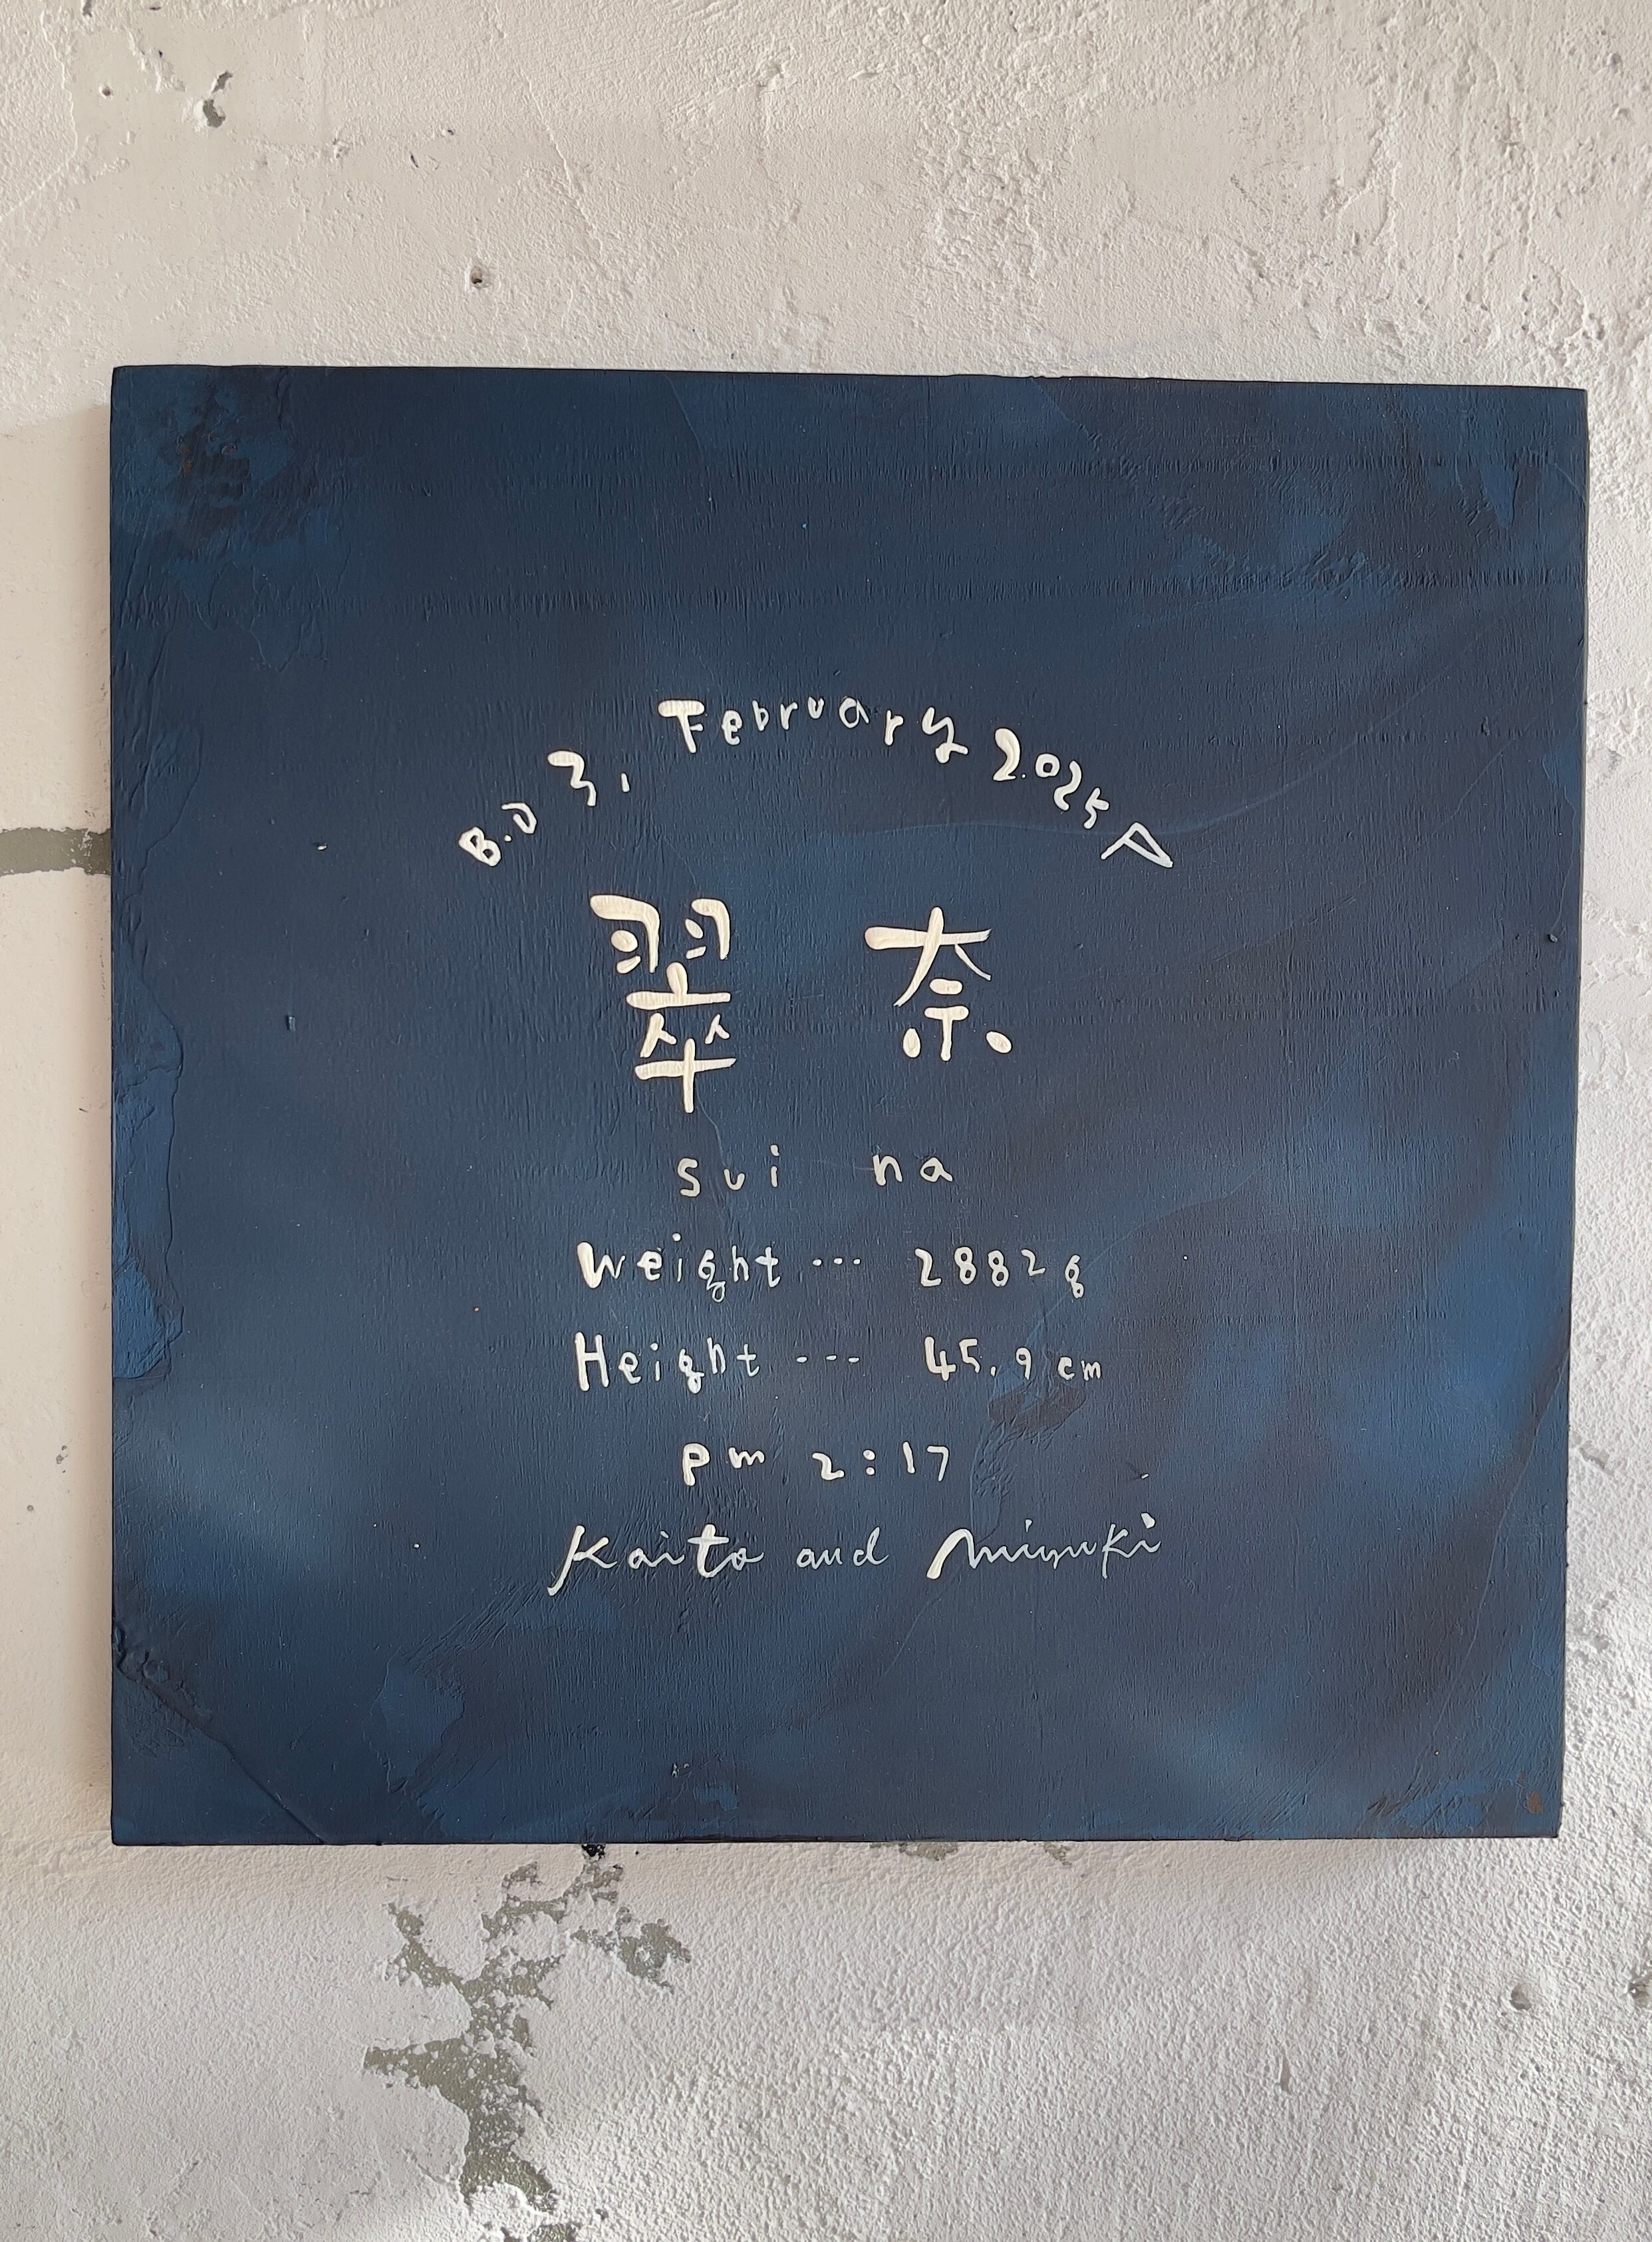 B.D 3, February 2025
翠 奈
sui na
Weight … 2882g
Height … 45.9cm
pm 2:17
Kaito and Miyuki